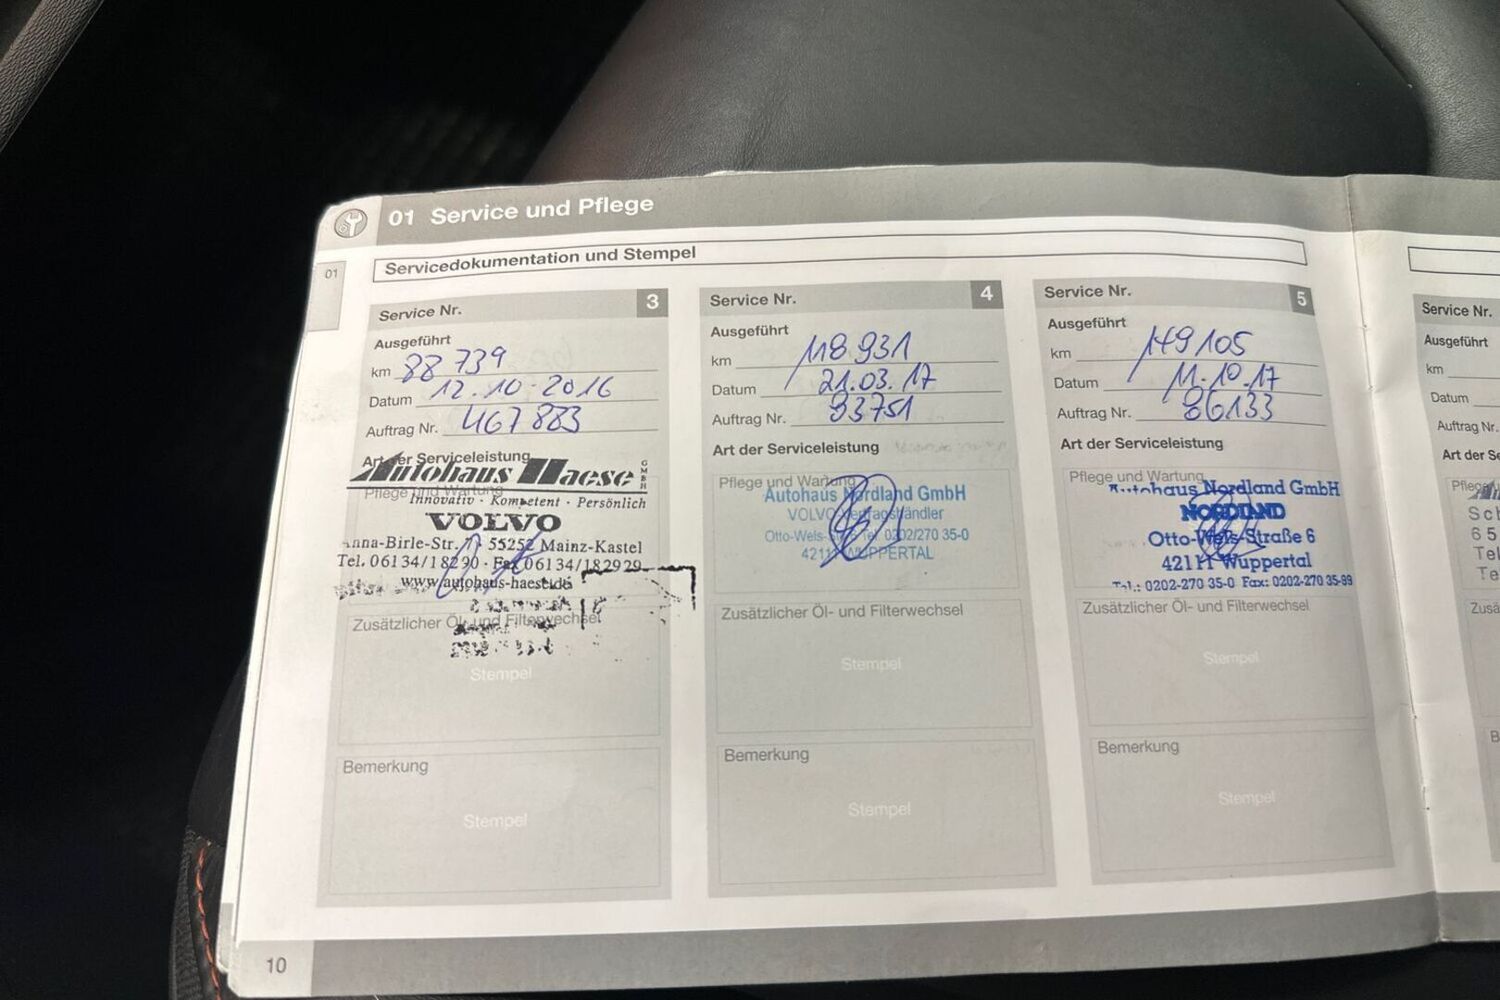 01 Service und Pflege
01
Servicedokumentation und Stempel
Service Nr. 3
Ausgeführt
km 88 739
Datum 12.10-2016
Auftrag Nr. 467 883
Art der Serviceleistung
Pflege und Wartung
Autohaus Haese GMBH
Innovativ · Kompetent · Persönlich
VOLVO
Anna-Birle-Str. 55252 Mainz-Kastel
Tel. 06134/18290 · Fax 06134/182929
www.autohaus-haese.de
Zusätzlicher Öl- und Filterwechsel
Stempel
Bemerkung
Stempel
Service Nr. 4
Ausgeführt
km 118 931
Datum 21.03.17
Auftrag Nr. 93751
Art der Serviceleistung
Pflege und Wartung
Autohaus Nordland GmbH
VOLVO Vertragshändler
Otto-Wels- Tel. 0202/270 35-0
42111 WUPPERTAL
Zusätzlicher Öl- und Filterwechsel
Stempel
Bemerkung
Stempel
Service Nr. 5
Ausgeführt
km 149 105
Datum 11.10.17
Auftrag Nr. 86133
Art der Serviceleistung
Pflege und Wartung
Autohaus Nordland GmbH
NORDLAND
Otto-Wels-Straße 6
42111 Wuppertal
Tel.: 0202-270 35-0 Fax: 0202-270 35-99
Zusätzlicher Öl- und Filterwechsel
Stempel
Bemerkung
Stempel
10
Service Nr.
Ausgeführt
km
Datum
Auftrag Nr.
Art der Se
Pflege
Sch
65
Tel
Te
Zusä
B